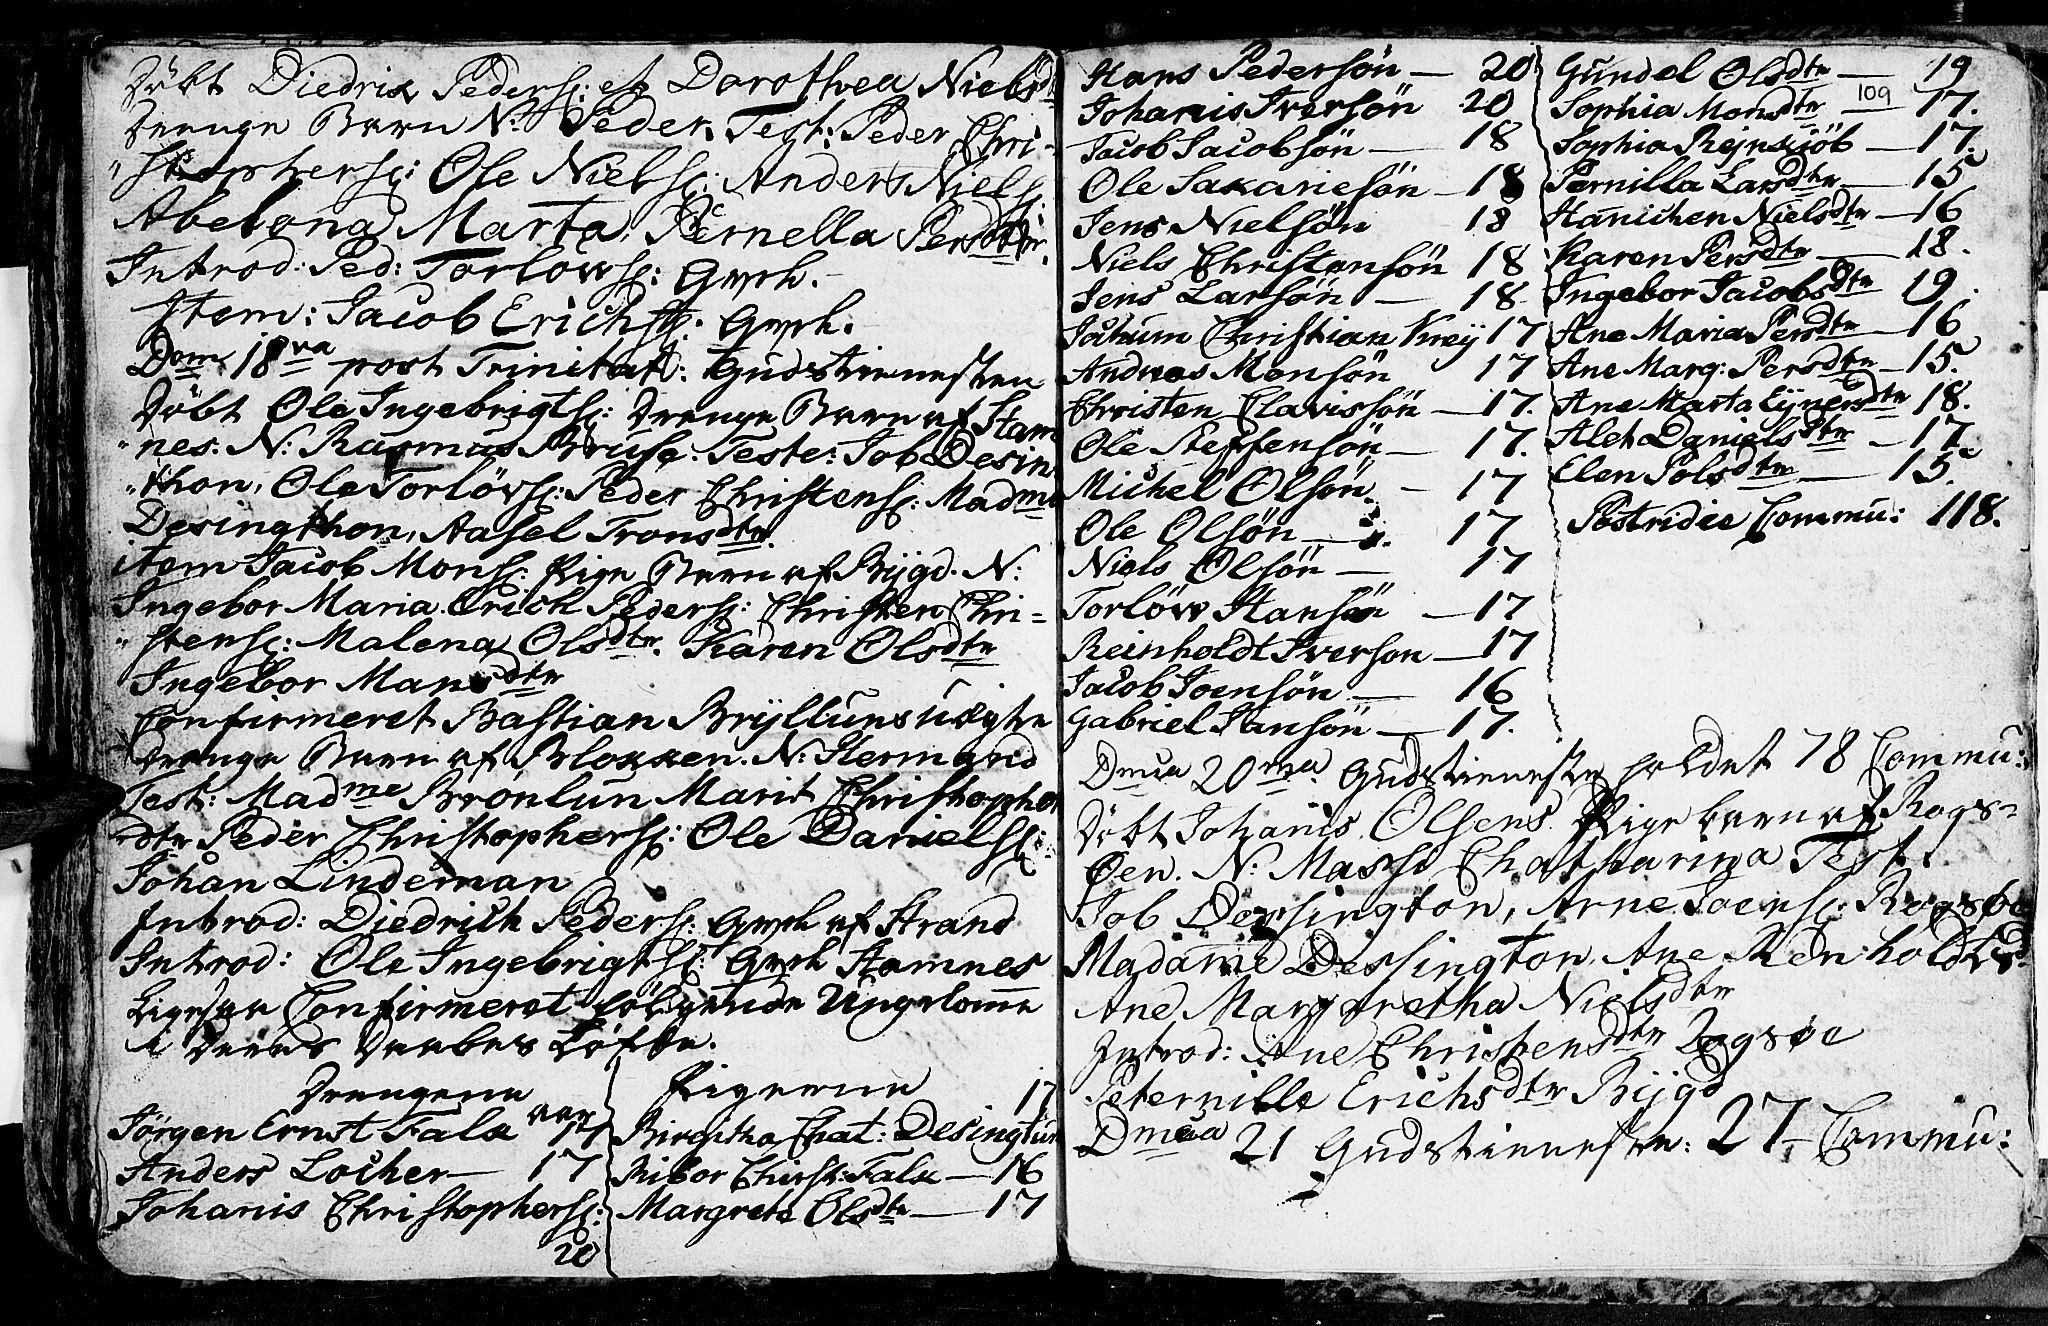 Döbt Diedrix Peders: et Dorothea Nielsdtr
Drenge Barn N: Peder. Test: Peder Chri-
"stophers: Ole Niels: Anders Niels:
Abelona, Marta, Pernella Persdttr.
Introd: Ped: Torlöws: Gyvh.
Item: Jacob Erichs: Gyvh.
Dom. 18va post Trinitat: Gudstienesten
Döbt Ole Ingebrigts: Drenge Barn af Stam
"nes. N: Rasmus Bruse. Teste: Job Desing
"thon, Ole Torlövs: Peder Christens: Madme
Desingthon, Aasel Tronsdtr.
item Jacob Mons: Pige Barn af Bÿgd. N:
Ingebor Maria. Erich Peders: Christen Chri=
"stens: Malena Olsdtr. Karen Olsdtr
Ingebor Mansdtr
Confirmeret Bastian Brÿlluns uægte
Drenge Barn af Bloxxen. N: Hermand
Test: Madme Brönlun Marit Christopher
dtr Peder Christophers: Ole Daniels:
Johan Lindeman
Introd: Diedrich Peders: Gyvh af Strand
Introd: Ole Ingebrigts: Gyvh Stamnes
Ligesaa Confirmeret fölgende Ungdomme
i Deres Daabes Löfte.
Drengene
aar
Jörgen Ernst Falx 17
Anders Locher— 17
Johanis Christophers:
20
Pigerne
17
Birgitha Chat: Desingtun
Ribor Christ: Falx — 16
Margrete Olsdtr — 17
Hans Pedersön — 20
Johanis Iversön 20
Jacob Jacobsön — 18
Ole Saxariesön — 18
Jens Nielsön 18
Niels Christensön 18
Jens Larsön — 18
Jochum Christian Kreÿ 17
Andreas Monsön 17
Christen Clavissön — 17.
Ole Steffensön — 17.
Michel Olsön. — 17
Ole Olsön — 17
Niels Olsön — 17
Torlöw Hansön — 17
Reinholdt Iverson — 17
Jacob Joensön — 16
Gabriel Hansön — 17.
109
Gundel Olsdtr — 19
Sophia Monsdtr — 17.
Sophia Rejnsiöb — 17.
Pernilla Larsdtr — 15
Hanichen Nielsdtr — 16
Karen Persdtr — 18.
Ingebor Jacobsdtr 19.
Ane Maria Persdtr — 16
Ane Marg: Persdtr — 15.
Ane Marta Eÿnersdtr 18.
Alet Danielsdtr — 17
Elen Polsdtr — 15.
Postridie Commu: 118.
Dmca 20ma. Gudstieneste holdet 78 Commu:
Döbt Johanis Olsens Pige barn af Rogs=
Øen. N: Masse Chatharina Test:
Job Dessington, Arne Joens: Rogsøe
Madame Dessington. Ane Renholdtsd
Ane Margaretha Nielsdtr
Introd: Ane Christensdtr Rogsøe
Peternille Erichsdtr Bÿgd
Dmca 21 Gudstieneste: 27 Commu: